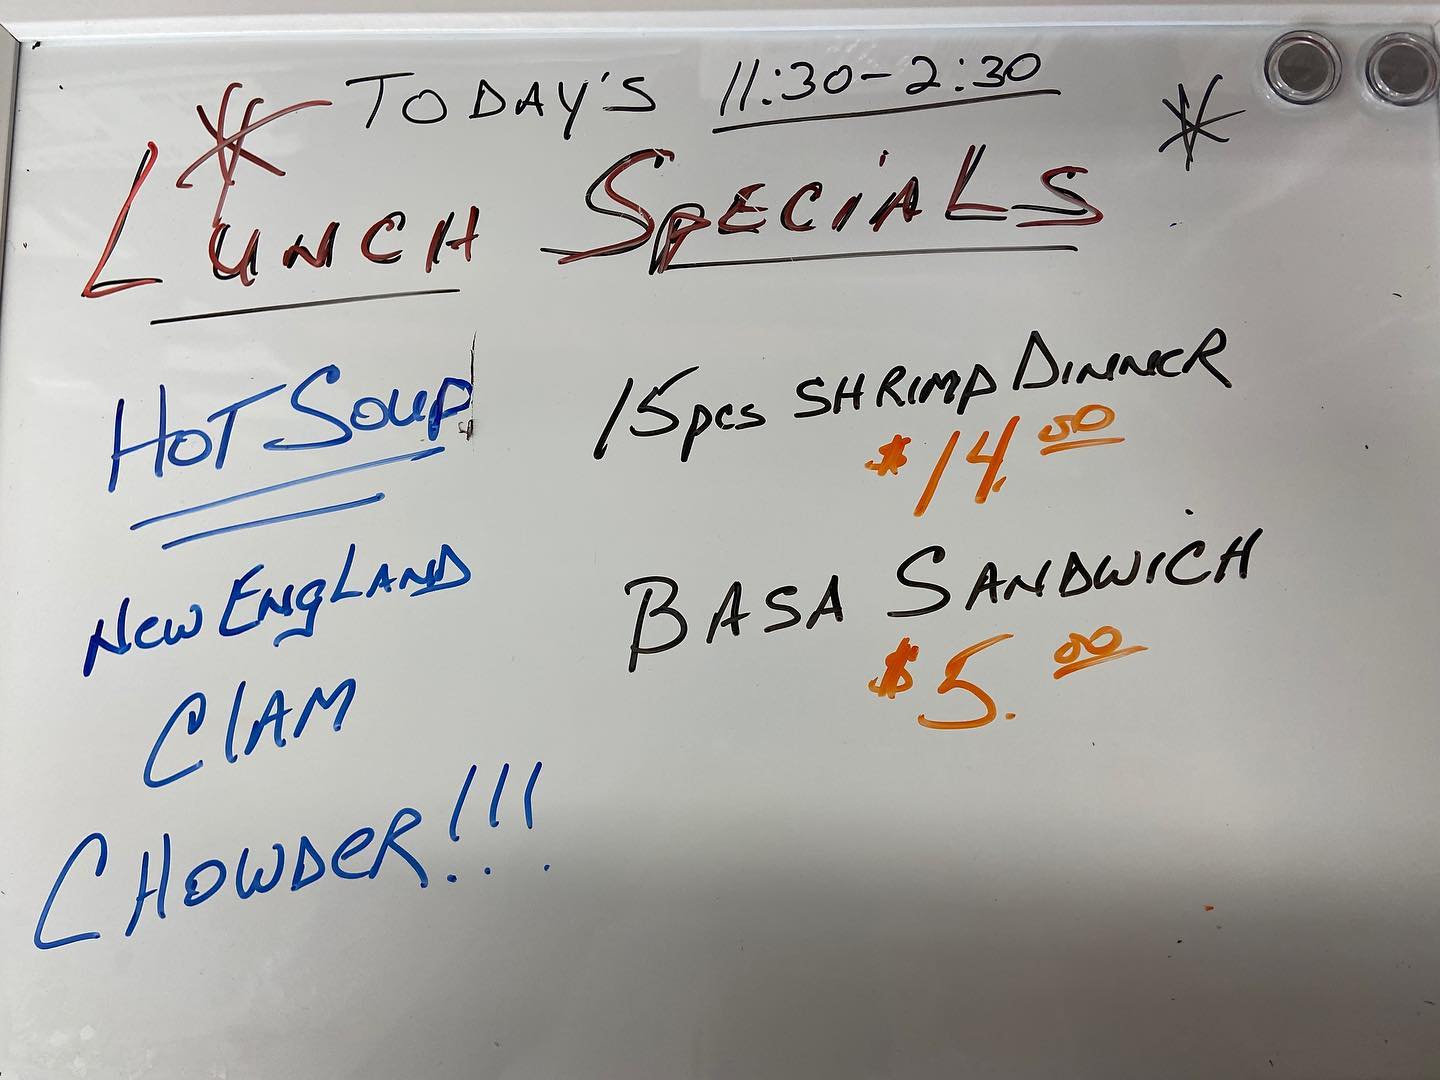 TODAY'S 11:30-2:30
LUNCH SPECiALS
HOT SOUP
NEW ENGLAND
ClAM
CHOWDER!!!
15pcs SHRIMP DINNER
$14.00
BASA SANDWiCH
$5.00